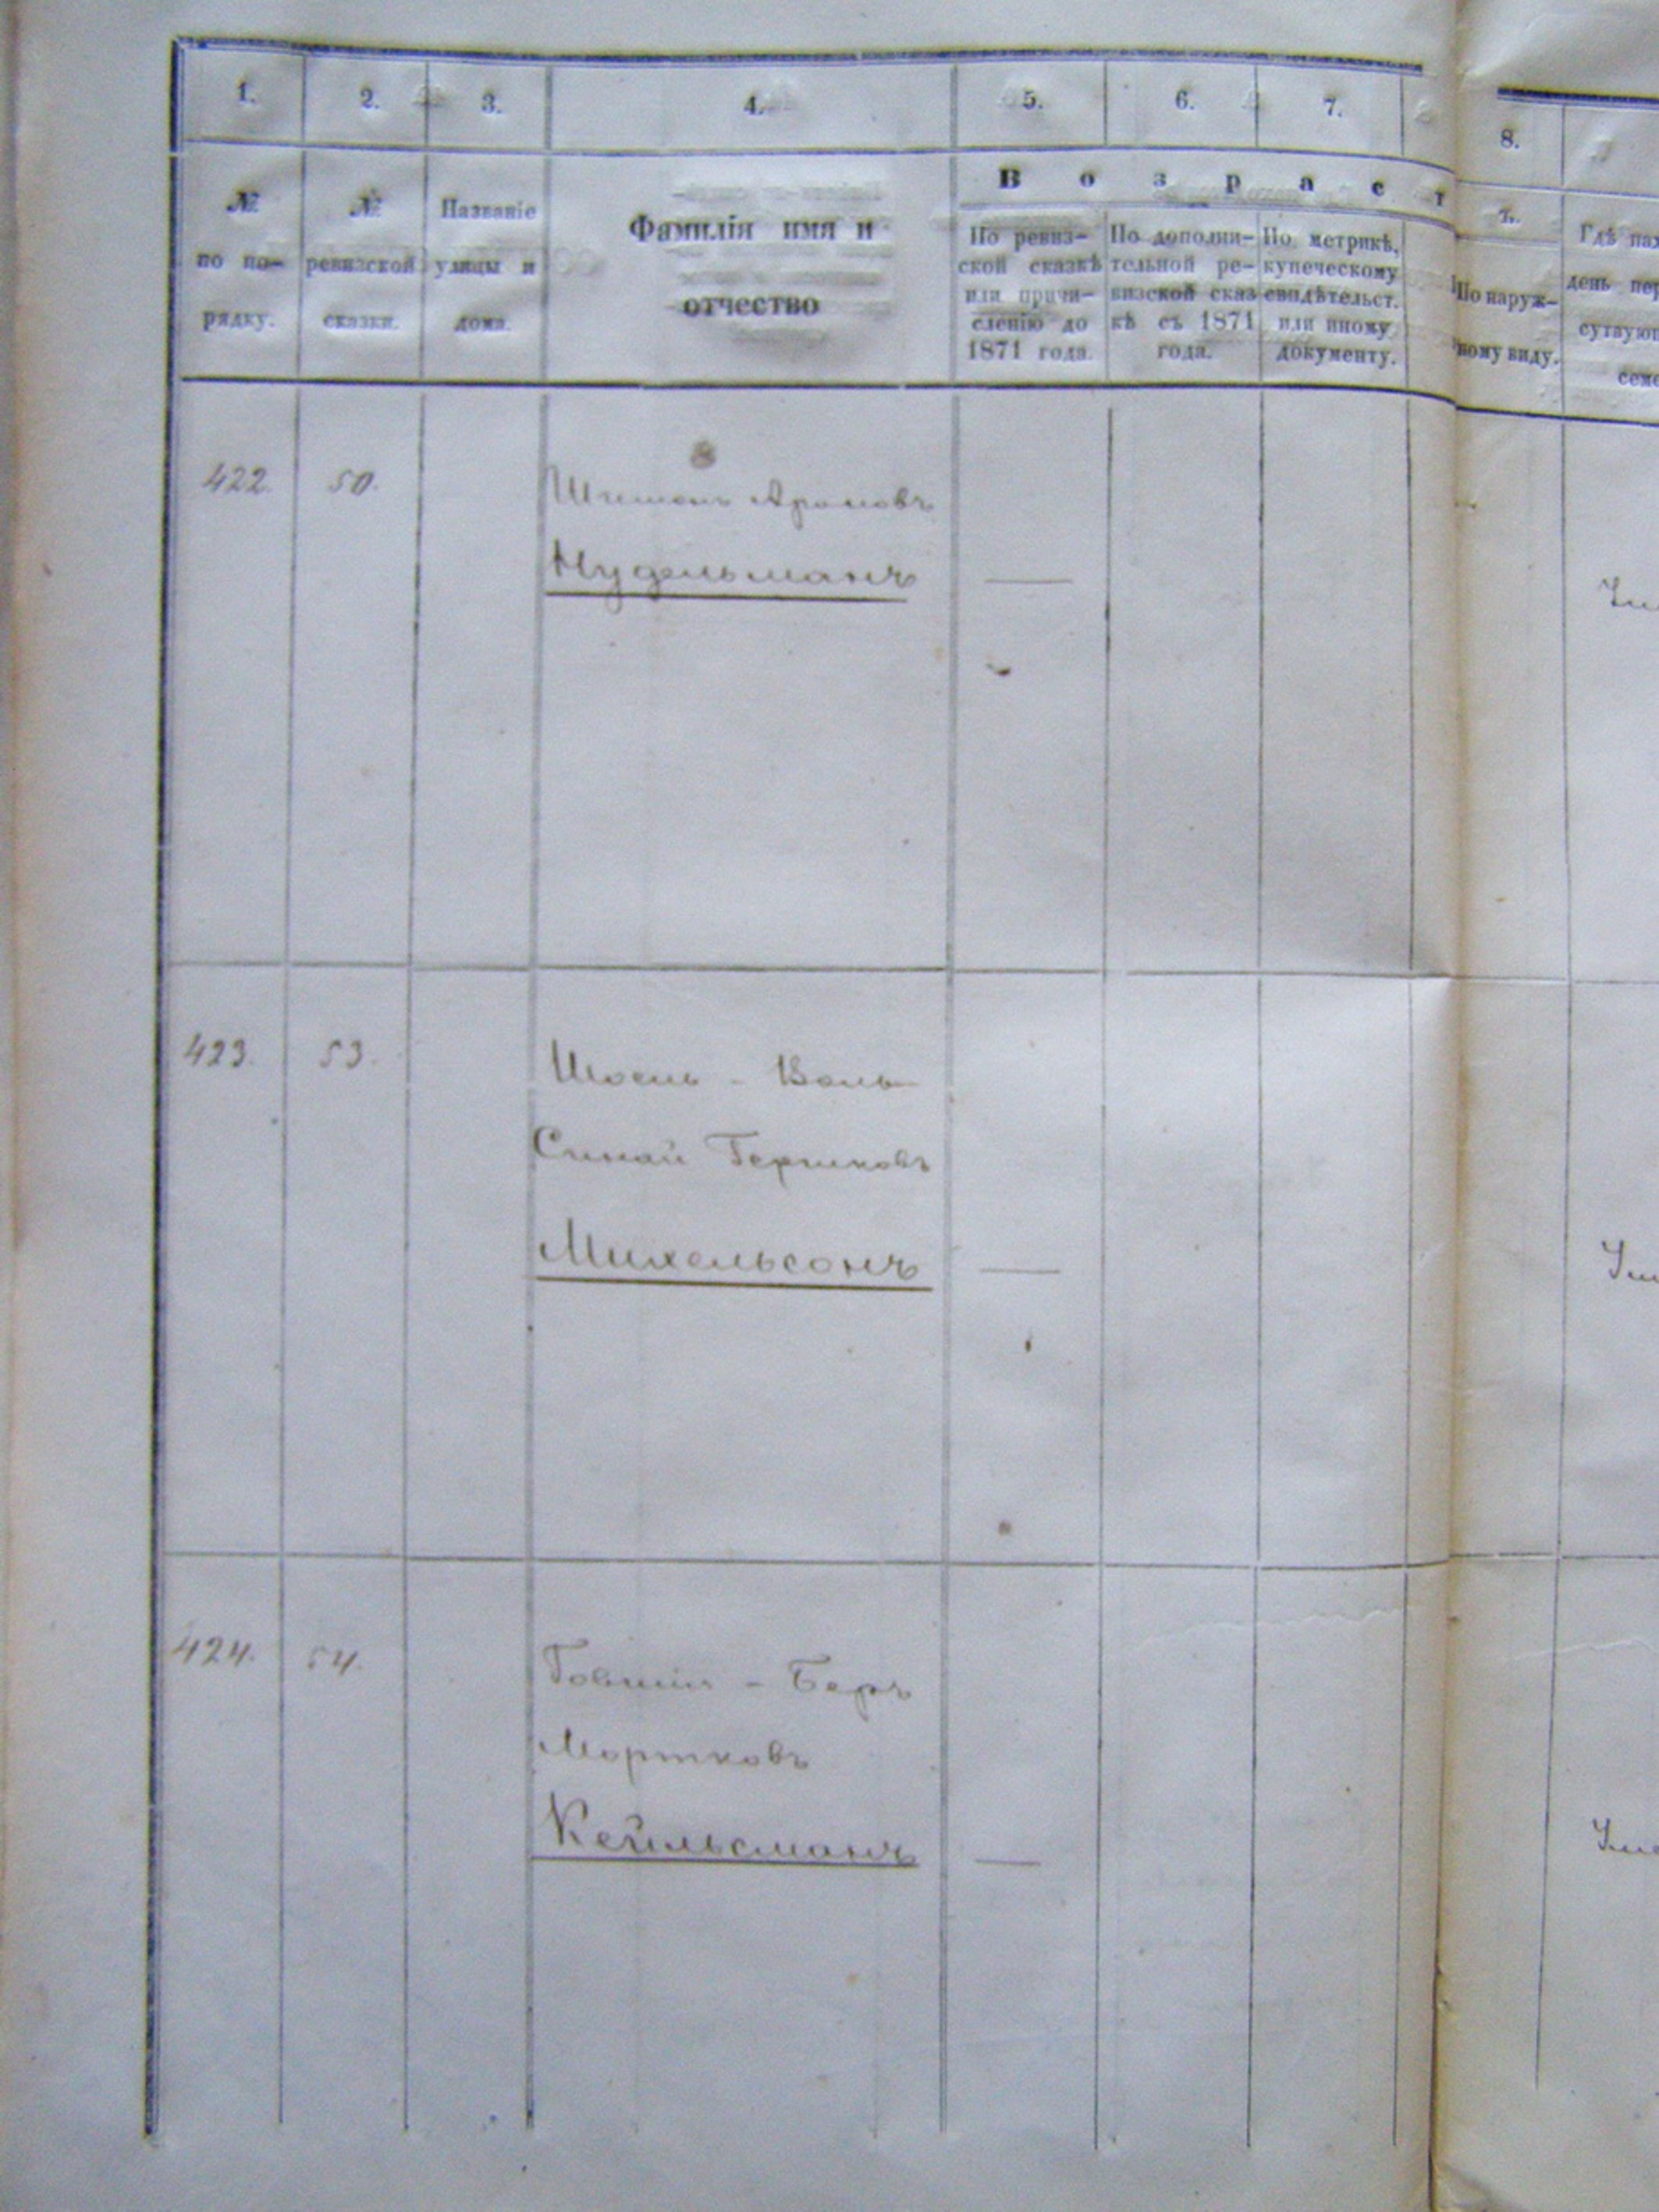 1. 2. 3. 4. 5. 6. 7. 8.
№ по по-рядку.
№ ревизской сказки.
Названіе улицы и дома.
Фамилія имя и
отчество
В о з р а с т ъ.
По ревиз-
ской сказкѣ
или причи-
сленію до
1871 года.
По дополни-
тельной ре-
визской сказ
кѣ съ 1871
года.
По метрикѣ,
купеческому
свидѣтельст.
или иному
документу.
По наруж-
ному виду.
Гдѣ нах
день пер
сутвуюп
семе
422. 50. Шимонъ Ароновъ
Нудельманъ —
423. 53.
Синай Гершковъ
Михельсонъ —
424. 54. Товшія - Беръ
Мортковъ
Кейльсманъ —